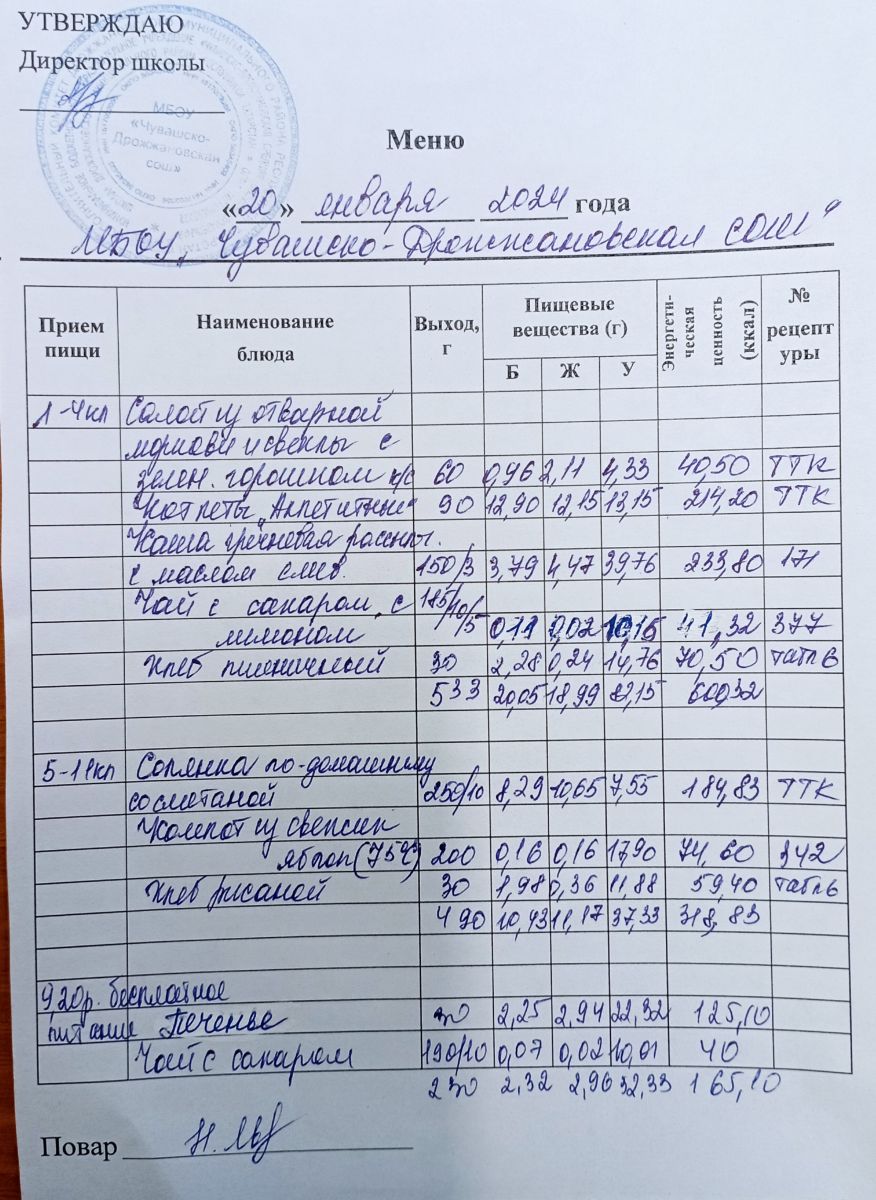 УТВЕРЖДАЮ
Директор школы
МБОУ
«Чувашско-
Дрожжановская
сош»
Меню
«20» января 2024 года
МБОУ „Чувашско-Дрожжановская СОШ"
Прием пищи Наименование блюда Выход, г Пищевые вещества (г) Б Ж У Энергети-ческая ценность (ккал) № рецептуры
1-4кл Салат из отварной
моркови и свеклы с
зелен. горошком к/с 60 0,96 2,11 4,33 40,50 ТТК
Котлеты „Аппетитные" 90 12,90 12,15 13,15 214,20 ТТК
Каша гречневая рассып.
с маслом слив. 150/3 3,79 4,47 39,76 233,80 171
Чай с сахаром, с 185/10/5
лимоном 0,11 0,02 10,15 41,32 377
Хлеб пшеничный 30 2,28 0,24 14,76 70,50 табл 6
533 20,05 18,99 82,15 600,32
5-11кл Солянка по-домашнему
со сметаной 250/10 8,29 10,65 7,55 184,83 ТТК
Компот из свежих
яблок (75°) 200 0,16 0,16 17,90 74,60 342
Хлеб ржаной 30 1,98 0,36 11,88 59,40 табл 6
490 10,43 11,17 37,33 318,83
9,20р. бесплатное
питание Печенье 30 2,25 2,94 22,32 125,10
Чай с сахаром 190/10 0,07 0,02 10,01 40
230 2,32 2,96 32,33 165,10
Повар